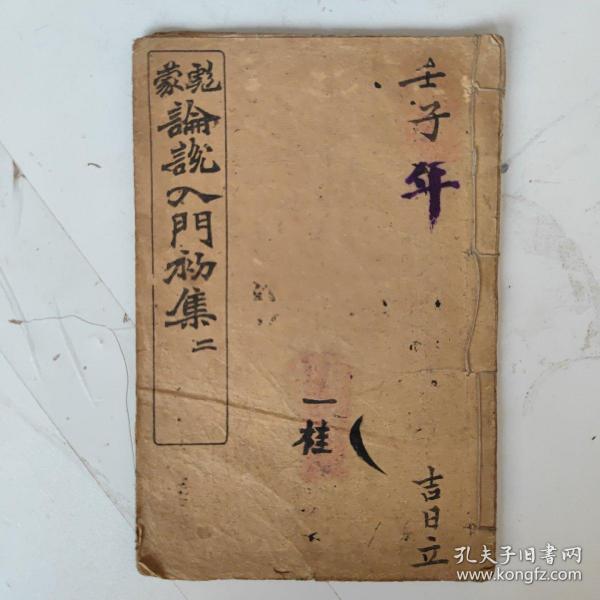 壬子年
吉日立
一桂
彪蒙
論説入門初集 二
孔夫子旧书网
www.kongfz.com